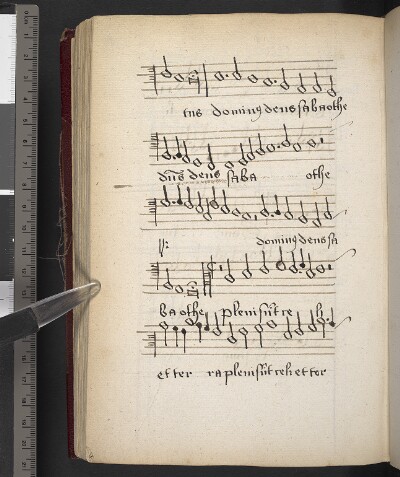 tus dominus deus sabaothe
dns deus saba othe
dominus deus sa
ba othe pleni sunt ce li
et ter ra pleni sunt celi et ter